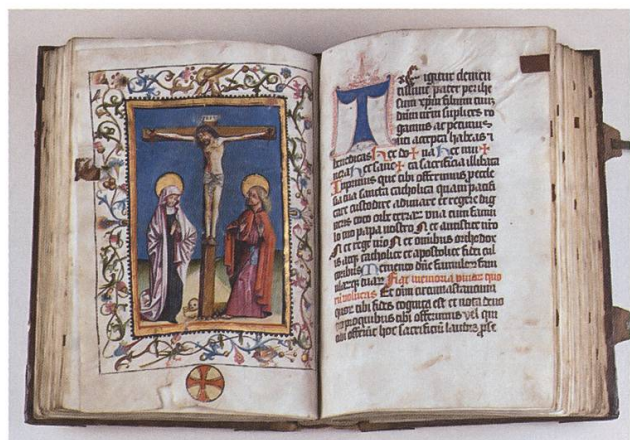 Te igitur clemen
tissime pater per ihe
sum xpm filium tuum
dnm nrm suplices ro
gamus ac petimus
uti accepta habeas et
benedicas hec do + na hec mu +
nera hec sanc + ta sacrificia illibata
Inprimis que tibi offerimus p eccle
sia tua sancta catholica quam pacifi
care custodire adunare et regere dig
neris toto orbe terrarum una cum famu
lo tuo papa nostro N et antistite nro
N et rege nro N et omnibus orthodox
is atque catholice et apostolice fidei cul
toribus Memento dne famulorum fam
ularumque tuarum
Et omnium circumastancium
quorum tibi fides cognita est et nota devo
cio pro quibus tibi offerimus vel qui
tibi offerunt hoc sacrificium laudis p se